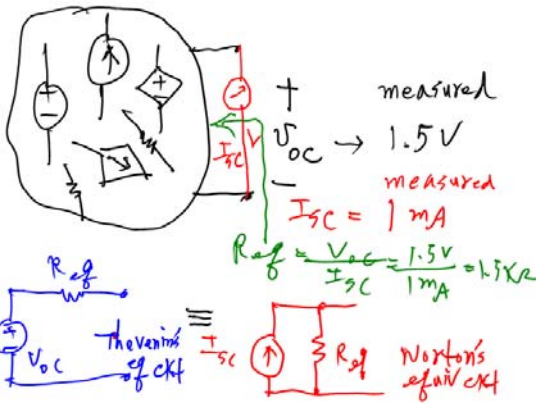 +
measured
V_OC → 1.5 V
I_SC
−
measured
I_SC = 1 mA
R_eq = V_OC / I_SC = 1.5V / 1 mA = 1.5 KΩ
R_eq
V_OC
Thevenin's
eq ckt
≡
I_SC
R_eq
Norton's
equiv ckt